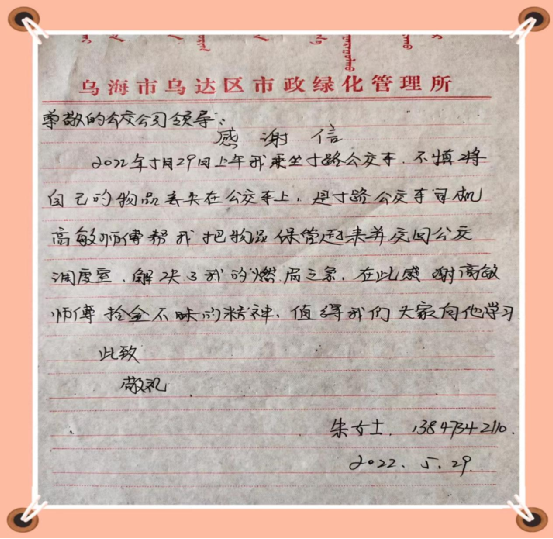 乌海市乌达区市政绿化管理所
尊敬的公交公司领导:
感谢信
2022年5月29日上午我乘坐5路公交车,不慎将
自己的物品丢失在公交车上,是5路公交车司机
高敏师傅帮我把物品保管起来并交回公交
调度室,解决了我的燃眉之急,在此感谢高敏
师傅拾金不昧的精神,值得我们大家向他学习
此致
敬礼
朱女士, 13847342110.
2022.5.29